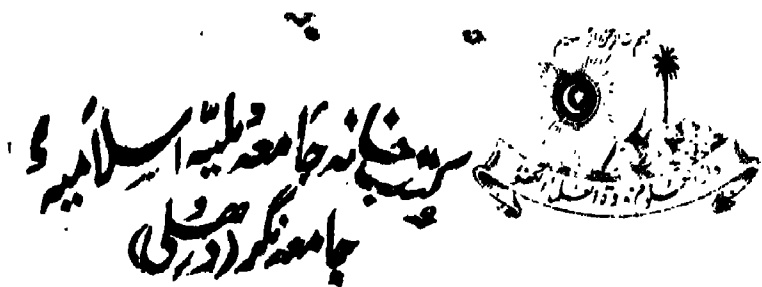 کتب خانہ جامعہ ملیہ اسلامیہ
جامعہ نگر (دہلی)